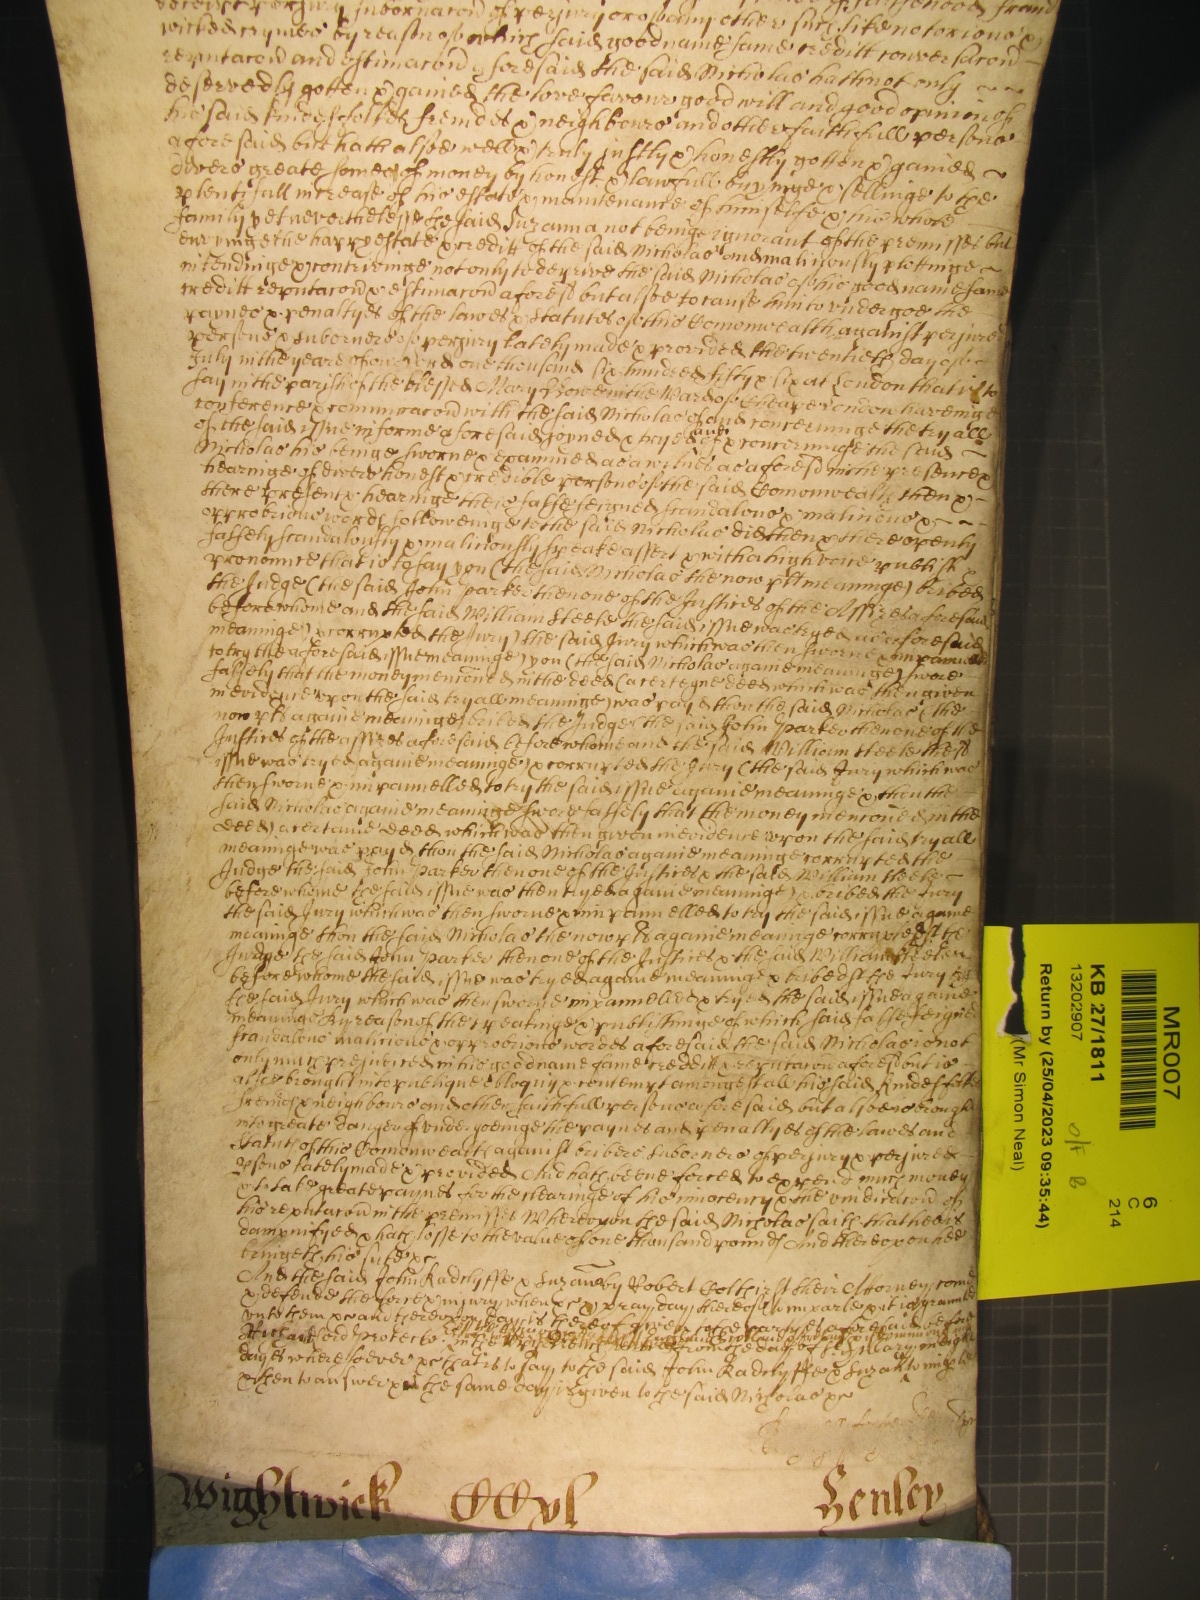 wicked crymes by reason of which said good name fame creditt conversacon
reputacon and estimacon aforesaid the said Nicholas hath not only
deservedly gotten & gained the love favour good will and good opinion of
his said kindesfolkes freindes & neighbours and other faithfull persons
aforesaid but hath alsoe well & truly justly & honestly gotten & gained
divers great somes of money by honest & lawfull buyinge & sellinge to the
plentifull increase of his estate & maintenance of himselfe & his whole
family yet neverthelesse the said Suzanna not beinge ignorant of the premisses but
envyinge the happy estate & creditt of the said Nicholas and maliciously plottinge
intendinge & contrivinge not only to deprive the said Nicholas of his good name fame
creditt reputacon & estimacon aforesd but alsoe to cause him to undergoe the
paynes & penaltyes of the lawes & Statutes of this Comonwealth against perjured
persons & subornors of perjury lately made & provided the twentieth day of
July in the yeare of our Lord one thousand six hundred fifty & six at London that is to
say in the parish of the blessed Mary Bowe in the Ward of Cheape London haveinge
conference & communicacon with the said Nicholas of and concerninge the tryall
of the said issue in forme aforesaid joyned & tryed and of & concerninge the said
Nicholas his beinge sworne & examined as a witnes as aforesd in the presence &
hearinge of divers honest & credible persons of the said Comonwealth then &
there present & hearinge theis false feigned scandalous & malicious &
opprobrious words followeinge to the said Nicholas did then & there openly
falsely scandalously & maliciously speake assert & with a high voice publish &
pronounce that is to say you (the said Nicholas the now plt meaninge) bribed
the Judge (the said John Parker then one of the Justices of the Assizes aforesaid
before whome and the said William Steele the said issue was tryed as aforesaid
meaninge) & corrupted the Jury (the said Jury which was then sworne & impannelled
to try the aforesaid issue meaninge) you (the said Nicholas againe meaninge) swore
falsely that the money mencioned in the deed (a certeyne deed which was then given
in evidence upon the said tryall meaninge) was payd thou the said Nicholas (the
now plt againe meaninge) bribed the Judge (the said John Parker then one of the
Justices of the assizes aforesaid before whome and the said William Steele the sd
issue was tryed againe meaninge) & corrupted the Jury (the said Jury which was
then sworne & impannelled to try the said issue againe meaninge & thou the
said Nicholas againe meaninge swore falsely that the money mencioned in the
deed a certaine deed which was then given in evidence upon the said tryall
meaninge was payd thou the said Nicholas againe meaninge corrupted the
Judge the said John Parker then one of the Justices & the said William Steele
before whome the said issue was then tryed againe meaninge) & bribed the Jury
the said Jury which was then sworne & impannelled to try the said issue againe
meaninge thou the said Nicholas the now plt againe meaninge corruptedst the
Judge the said John Parker then one of the Justices & the said William Steele
before whome the said issue was tryed againe meaninge & bribedst the Jury
the said Jury which was then sworne impannelled & tryed the said issue againe
meaninge By reason of the speakinge & publishinge of which said false feigned
scandalous malicious & opprobrious wordes aforesaid the said Nicholas is not
only much prejudiced in his good name fame creditt & reputacon aforesd but is
alsoe brought into publique obloquy & contempt amongest all his said kindesfolkes
freindes & neighbours and other faithfull persons aforesaid but alsoe is brought
into greate danger of undergoeinge the paynes and penaltyes of the lawes and
Statutes of this Comonwealth against bribers subornors of perjury & perjured
psons lately made & provided And hath beene forced to expend much money
& to take greate paynes for the clearinge of his innocency & the vindicacon of
his reputacon in the premisses Whereupon the said Nicholas saith that hee is
dampnifyed & hath losse to the value of one thousand pounds And thereupon hee
bringeth his suite &c
And the said John Radclyffe & Suzan by Robert Colthirst their Attorney come
& defende the force & injury when &c & pray day thereof to imparle & it is graunted
unto them &c and thereupon day is thereof given to the partyes aforesaid before
Richard Lord Protector
dayes wheresoever &c that is to say to the said John Radclyffe & Suzan to imparle
& then to answer &c the same day is given to the said Nicholas &c
Wightwick CCvl Henley
MR007
KB 27/1811
13202907
Return by (25/04/2023 09:35:44)
(Mr Simon Neal)
6
C
214
O/F B